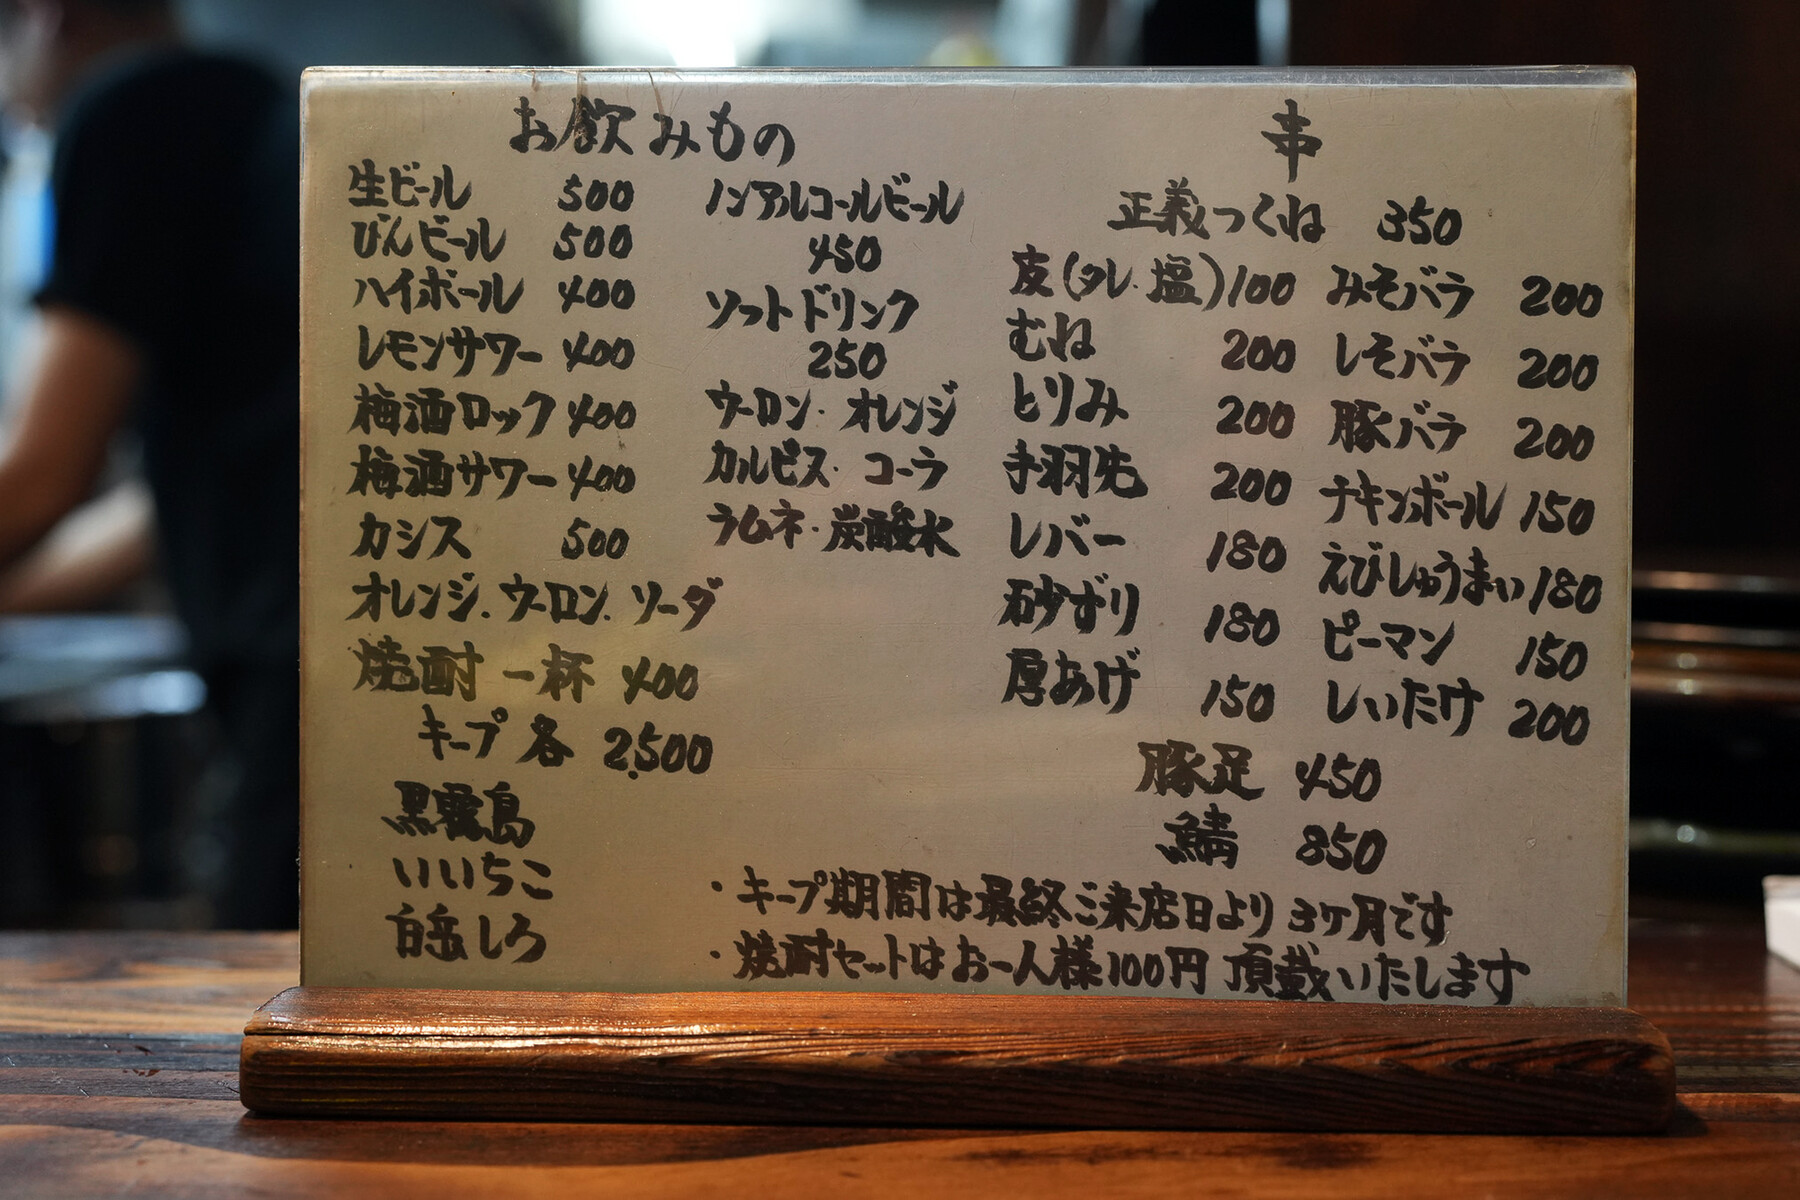 お飲みもの
生ビール 500
びんビール 500
ハイボール 400
レモンサワー 400
梅酒ロック 400
梅酒サワー 400
カシス 500
オレンジ.ウーロン.ソーダ
焼酎 一杯 400
キープ 各 2,500
黒霧島
いいちこ
白岳しろ
ノンアルコールビール
450
ソットドリンク
250
ウーロン・オレンジ
カルピス・コーラ
ラムネ・炭酸水
串
正義つくね 350
皮(タレ.塩)100
むね 200
とりみ 200
手羽先 200
レバー 180
砂ずり 180
厚あげ 150
みそバラ 200
しそバラ 200
豚バラ 200
チキンボール 150
えびしゅうまい 180
ピーマン 150
しいたけ 200
豚足 450
鯖 850
・キープ期間は最終ご来店日より3ヶ月です
・焼酎セットはお一人様100円頂戴いたします